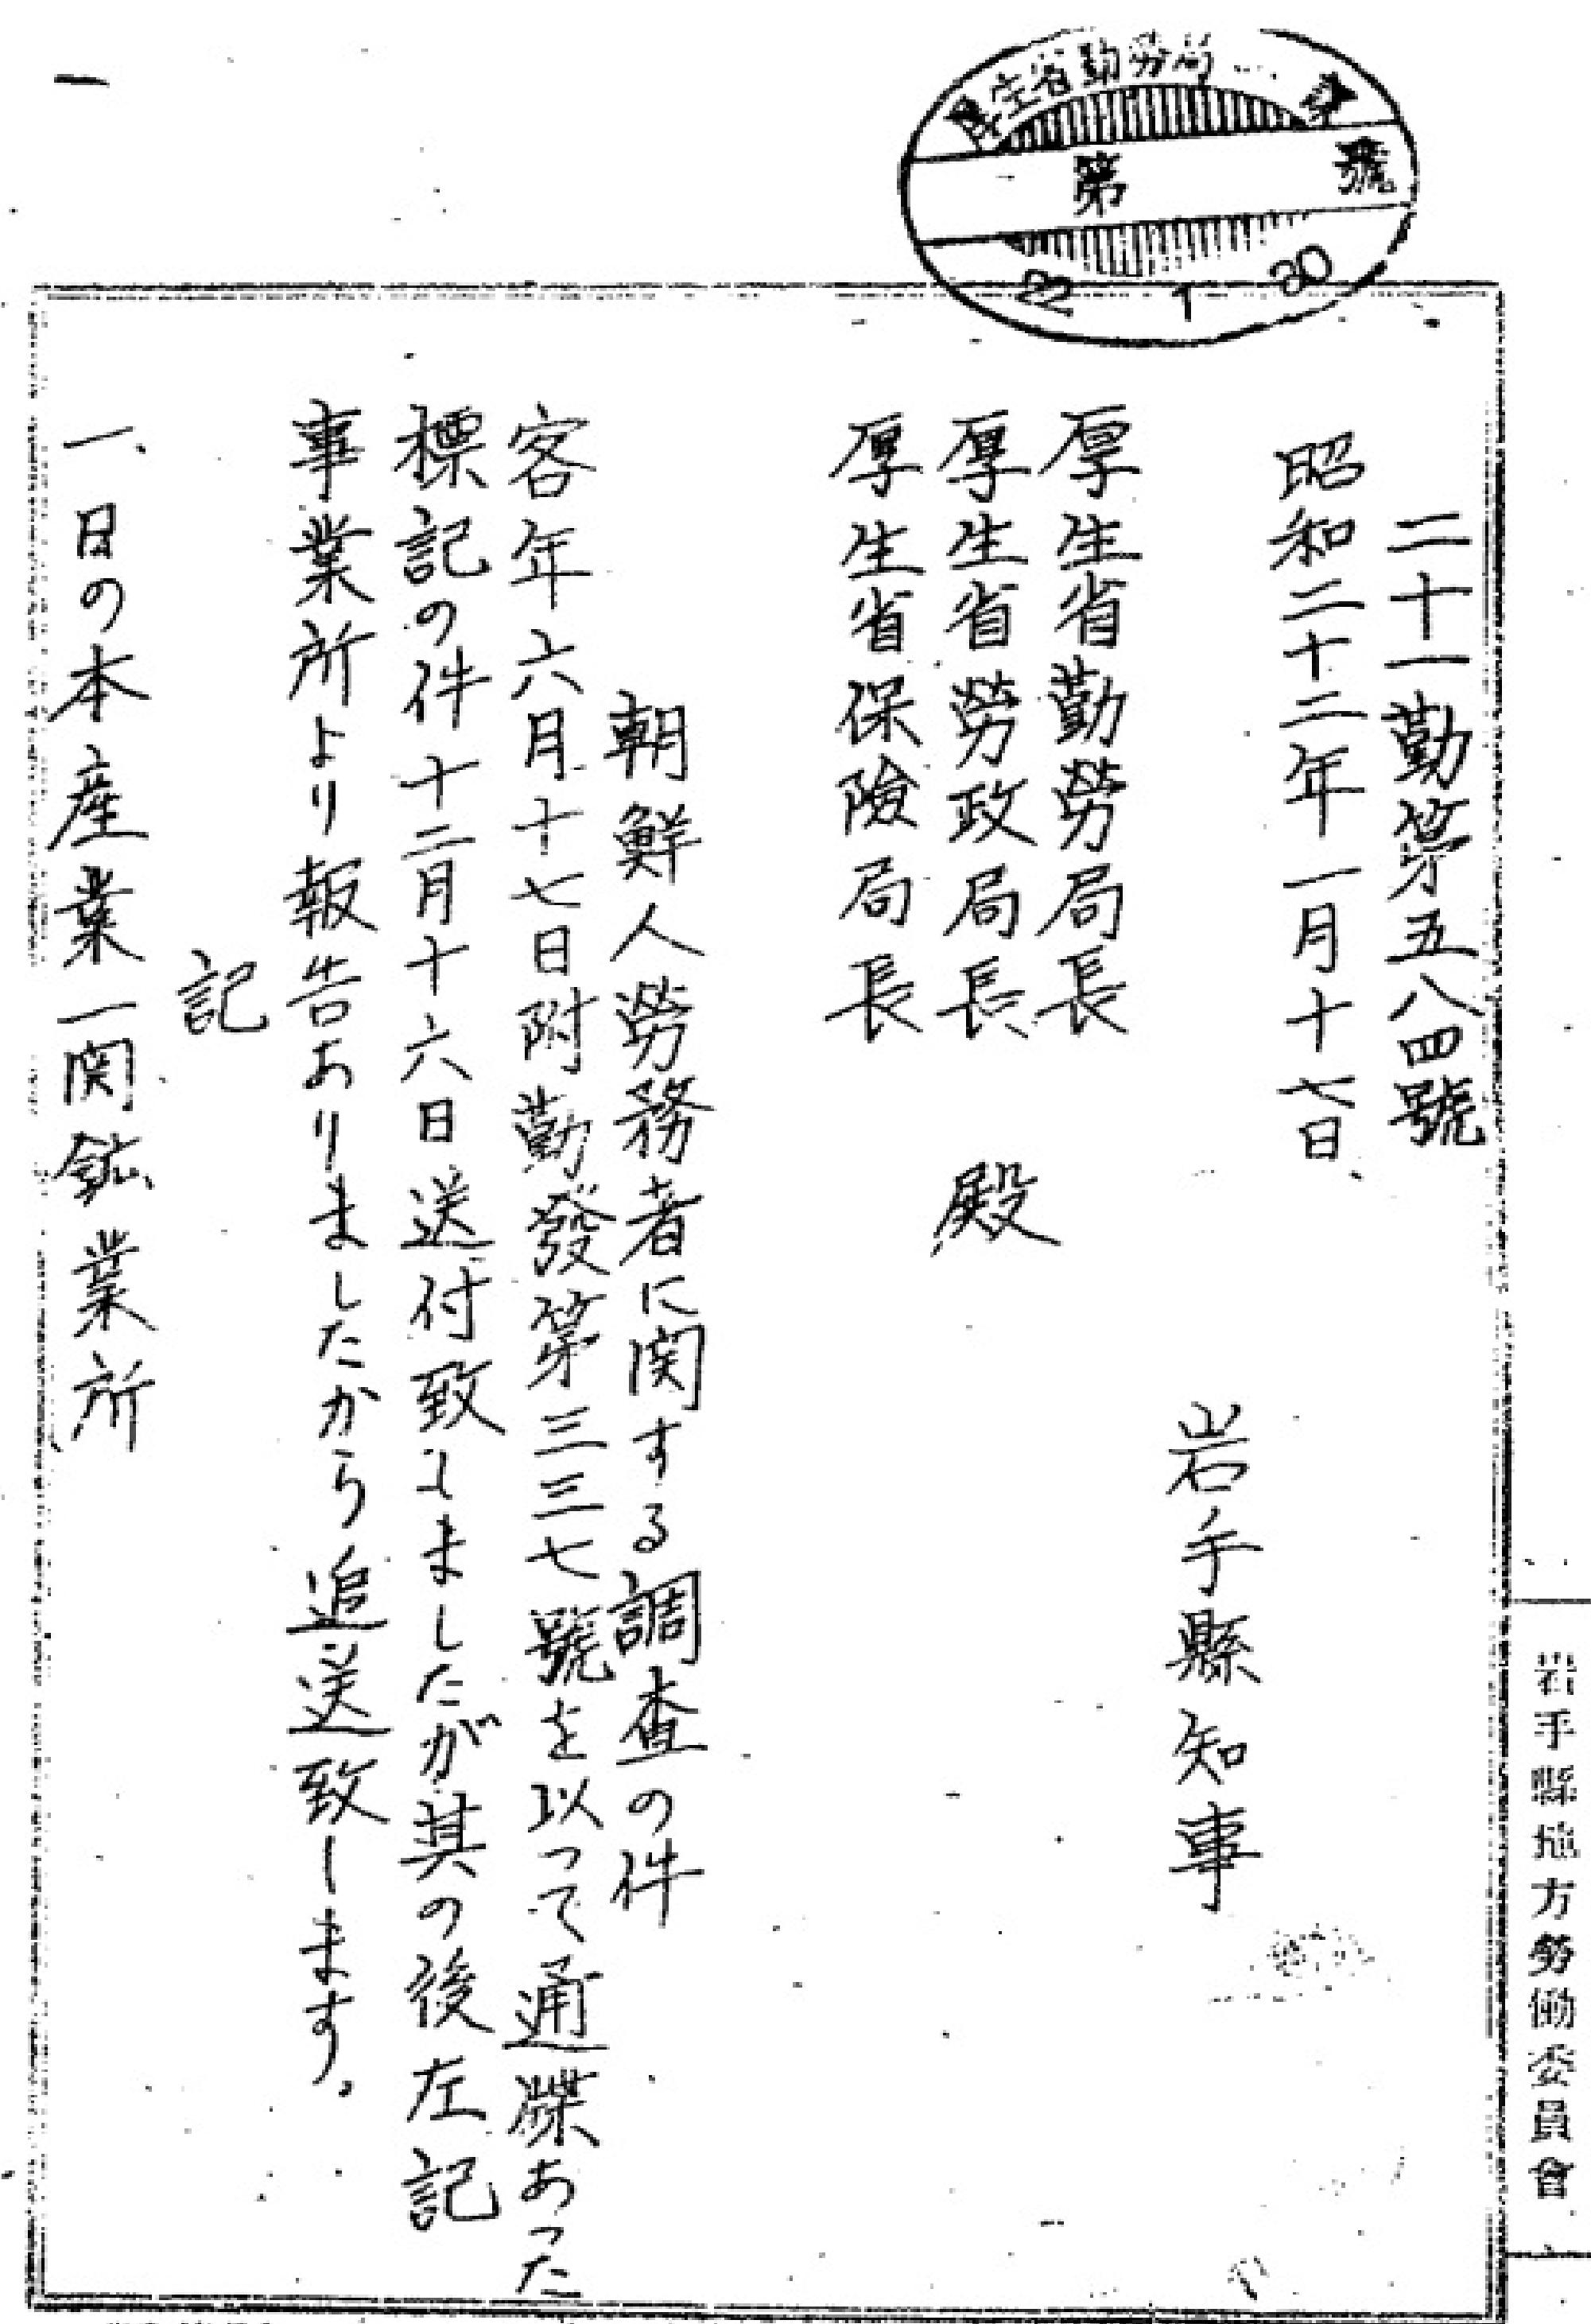 厚生省勤勞局
第 號
22 1 30
二十一勤第五八四號
昭和二十二年一月十七日
岩手縣知事
厚生省勤勞局長
厚生省勞政局長 殿
厚生省保險局長
朝鮮人勞務者に関する調査の件
客年六月十七日附勤發第三三七號を以って通牒あった
標記の件十二月十六日送付致しましたが其の後左記
事業所より報告ありましたから追送致します。
記
一、日の本産業一関鉱業所
岩手縣地方勞働委員會
一